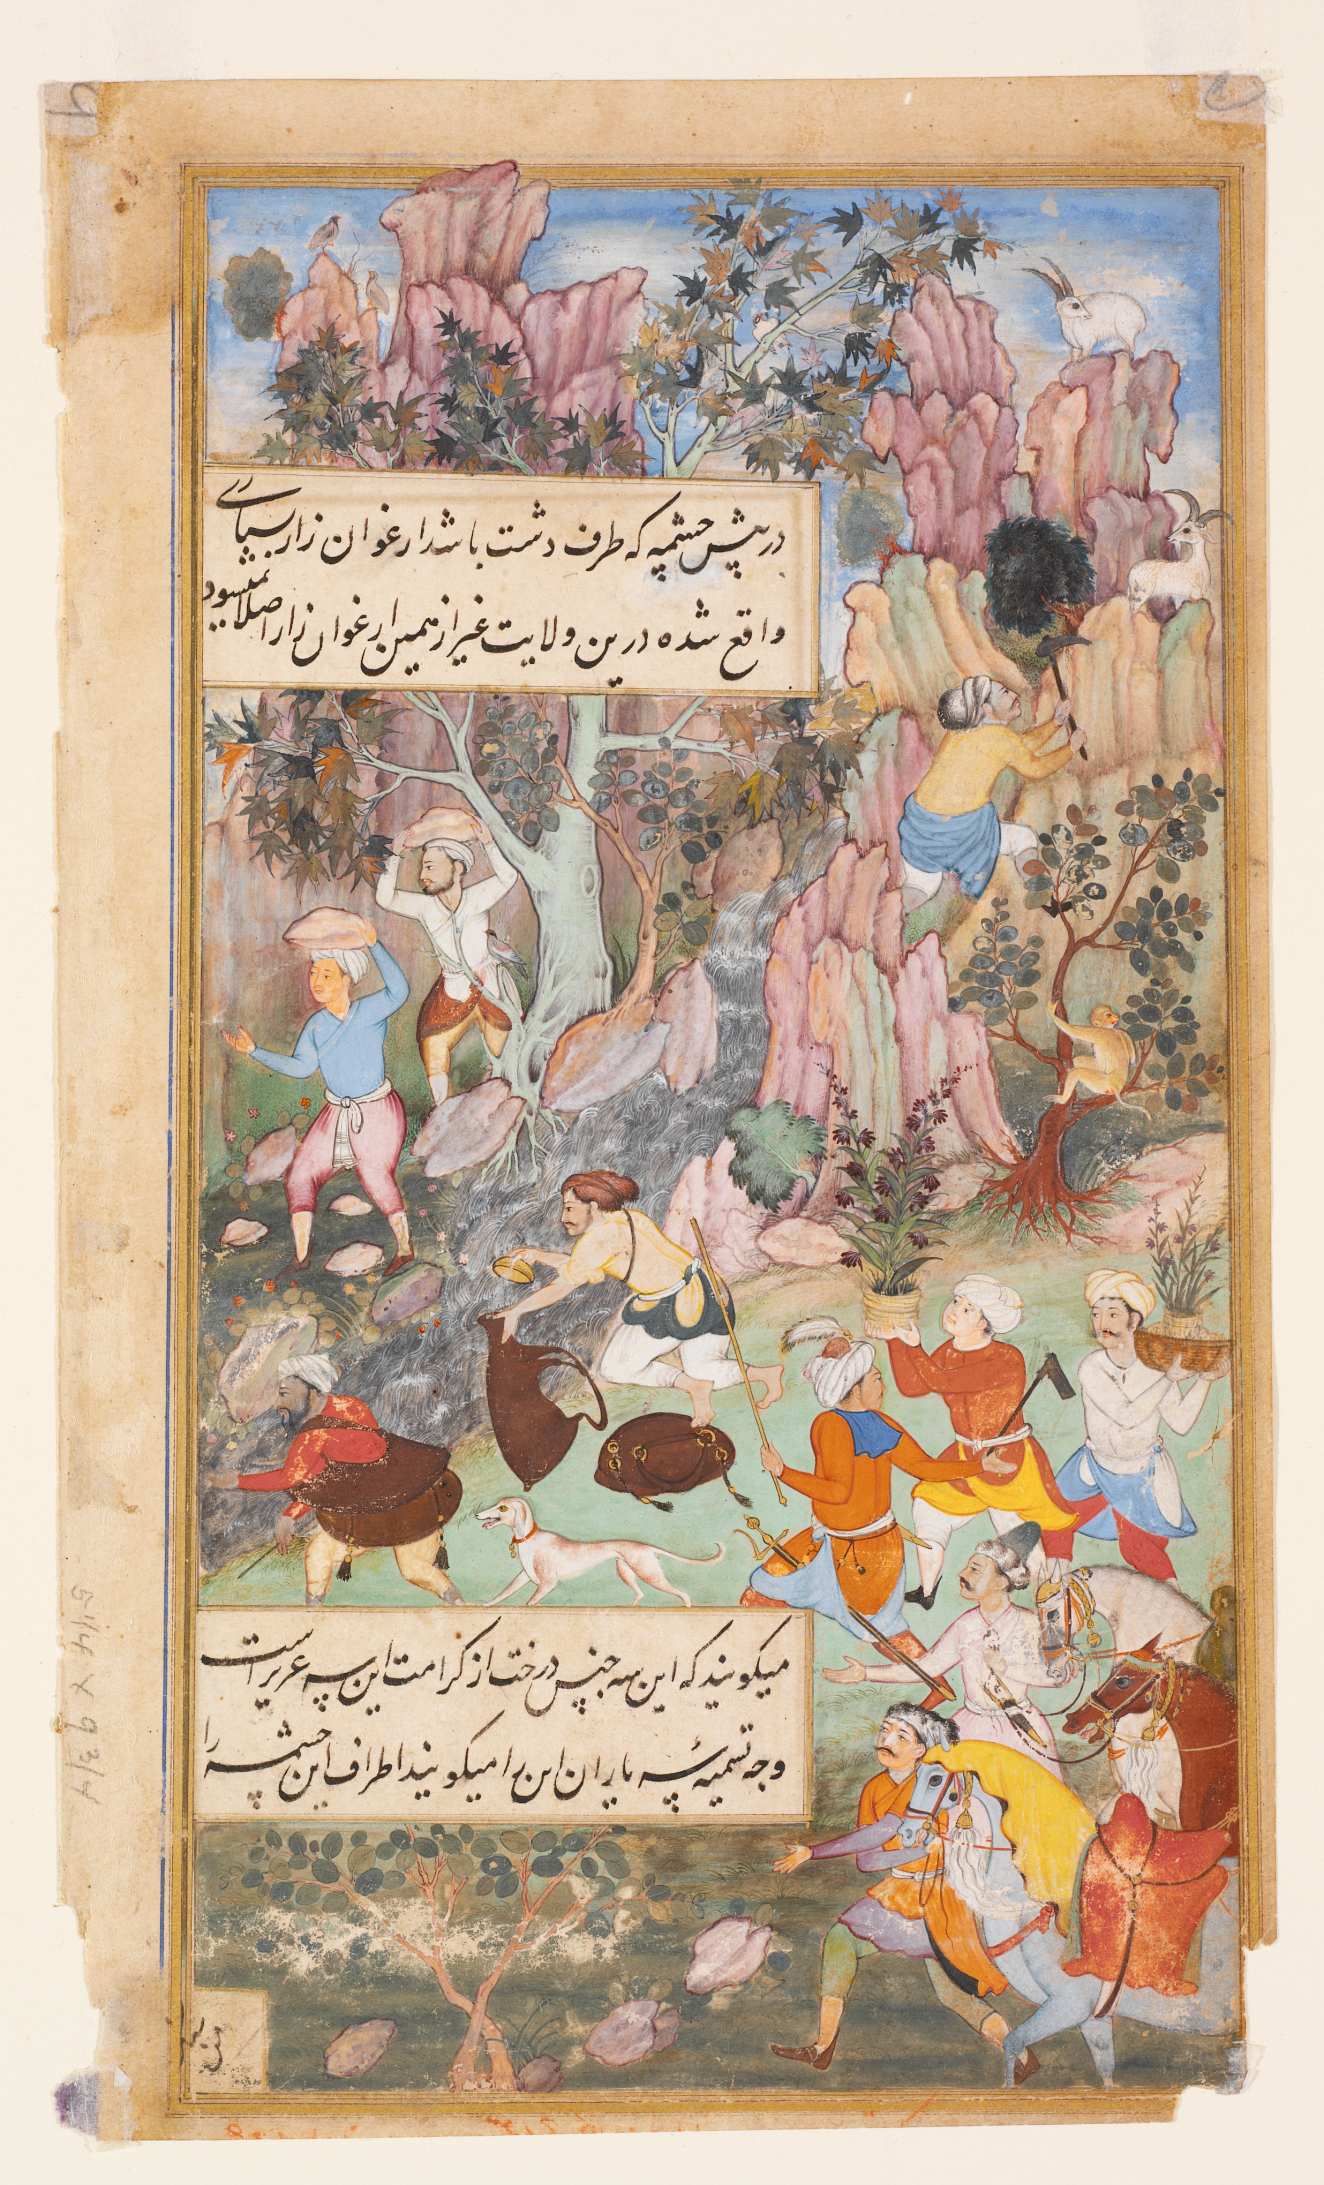 در پیش چشمه که طرف دشت باشد ارغوان زار بسیاری
واقع شده درین ولایت غیر از همین ارغوان زار اصلا نمیشود
میکویند که این سه جنس درخت از کرامت این سه عزیز است
وجه تسمیهٔ سه یاران این را میکویند اطراف این چشمه را